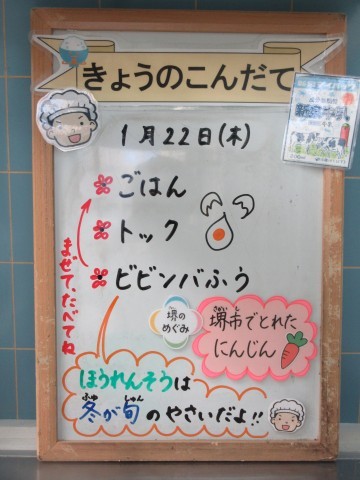 きょうのこんだて
1月22日(木)
ごはん
トック
ビビンバふう
まぜて、たべてね
堺の
めぐみ
堺市でとれた
にんじん
ほうれんそうは
冬が旬のやさいだよ!!